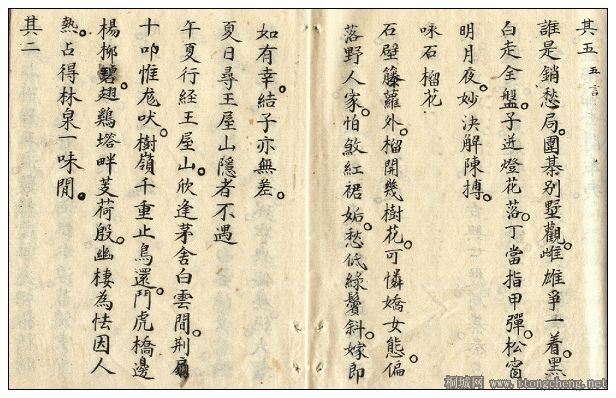 其五 五言
誰是銷愁局。圍棊別墅觀。雌雄爭一着。黑
白走全盤。子迸燈花落。丁當指甲彈。松窗
明月夜。妙決解陳摶。
咏石榴花
石壁籐蘿外。榴開幾樹花。可憐嬌女態。偏
落野人家。怕紅裙妬。愁低綠鬢斜。嫁郎
如有幸。結子亦無差。
夏日尋王屋山隱者不遇
午夏行經王屋山。欣逢茅舍白雲間。荊扉
十叩惟尨吠。樹嶺千重止鳥還。鬥虎橋邊
楊柳碧。翅鷄塔畔芰荷殷。幽棲為怯因人
熱。占得林泉一味閒。
其二
桐城网 www.itongcheng.net